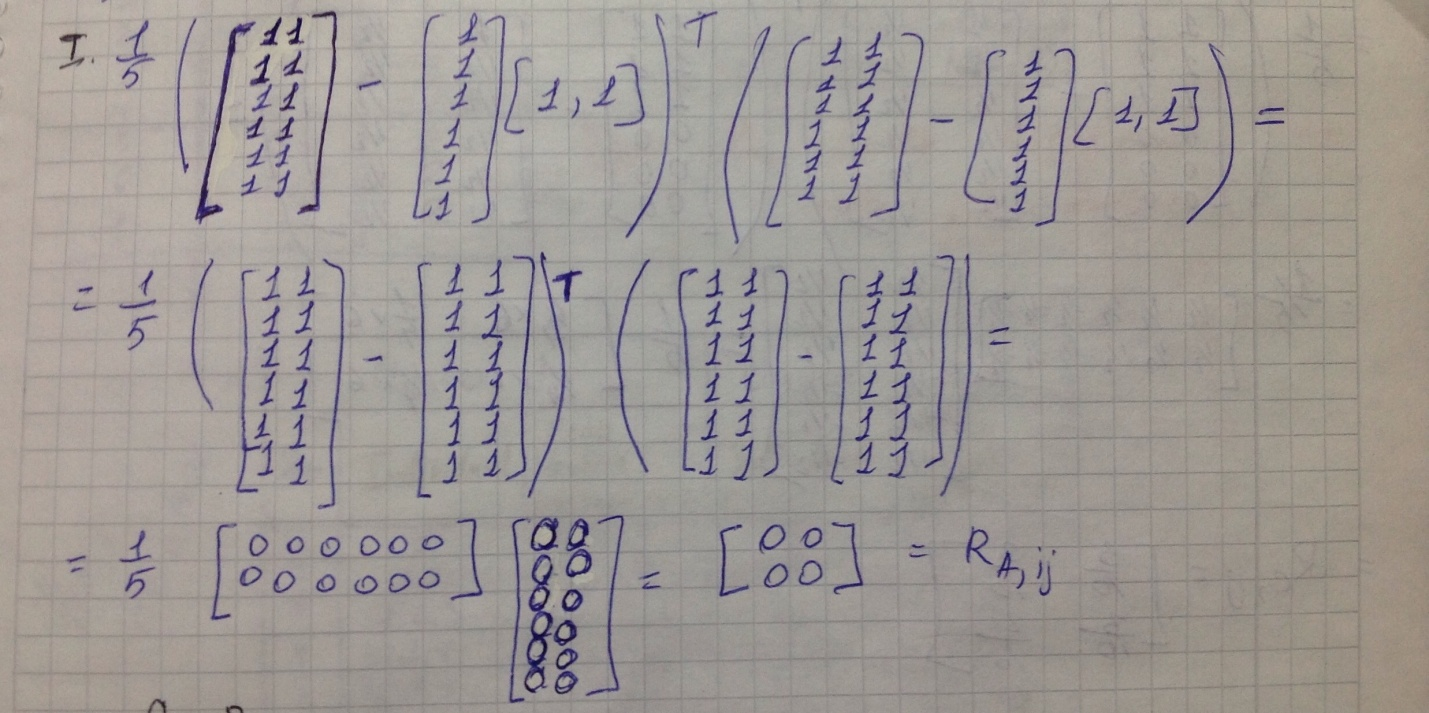 I. 1/5 ( [1 1; 1 1; 1 1; 1 1; 1 1; 1 1] - [1; 1; 1; 1; 1; 1] [1, 1] )^T ( [1 1; 1 1; 1 1; 1 1; 1 1; 1 1] - [1; 1; 1; 1; 1; 1] [1, 1] ) =
= 1/5 ( [1 1; 1 1; 1 1; 1 1; 1 1; 1 1] - [1 1; 1 1; 1 1; 1 1; 1 1; 1 1] )^T ( [1 1; 1 1; 1 1; 1 1; 1 1; 1 1] - [1 1; 1 1; 1 1; 1 1; 1 1; 1 1] ) =
= 1/5 [0 0 0 0 0 0; 0 0 0 0 0 0] [0 0; 0 0; 0 0; 0 0; 0 0; 0 0] = [0 0; 0 0] = R_{A,ij}